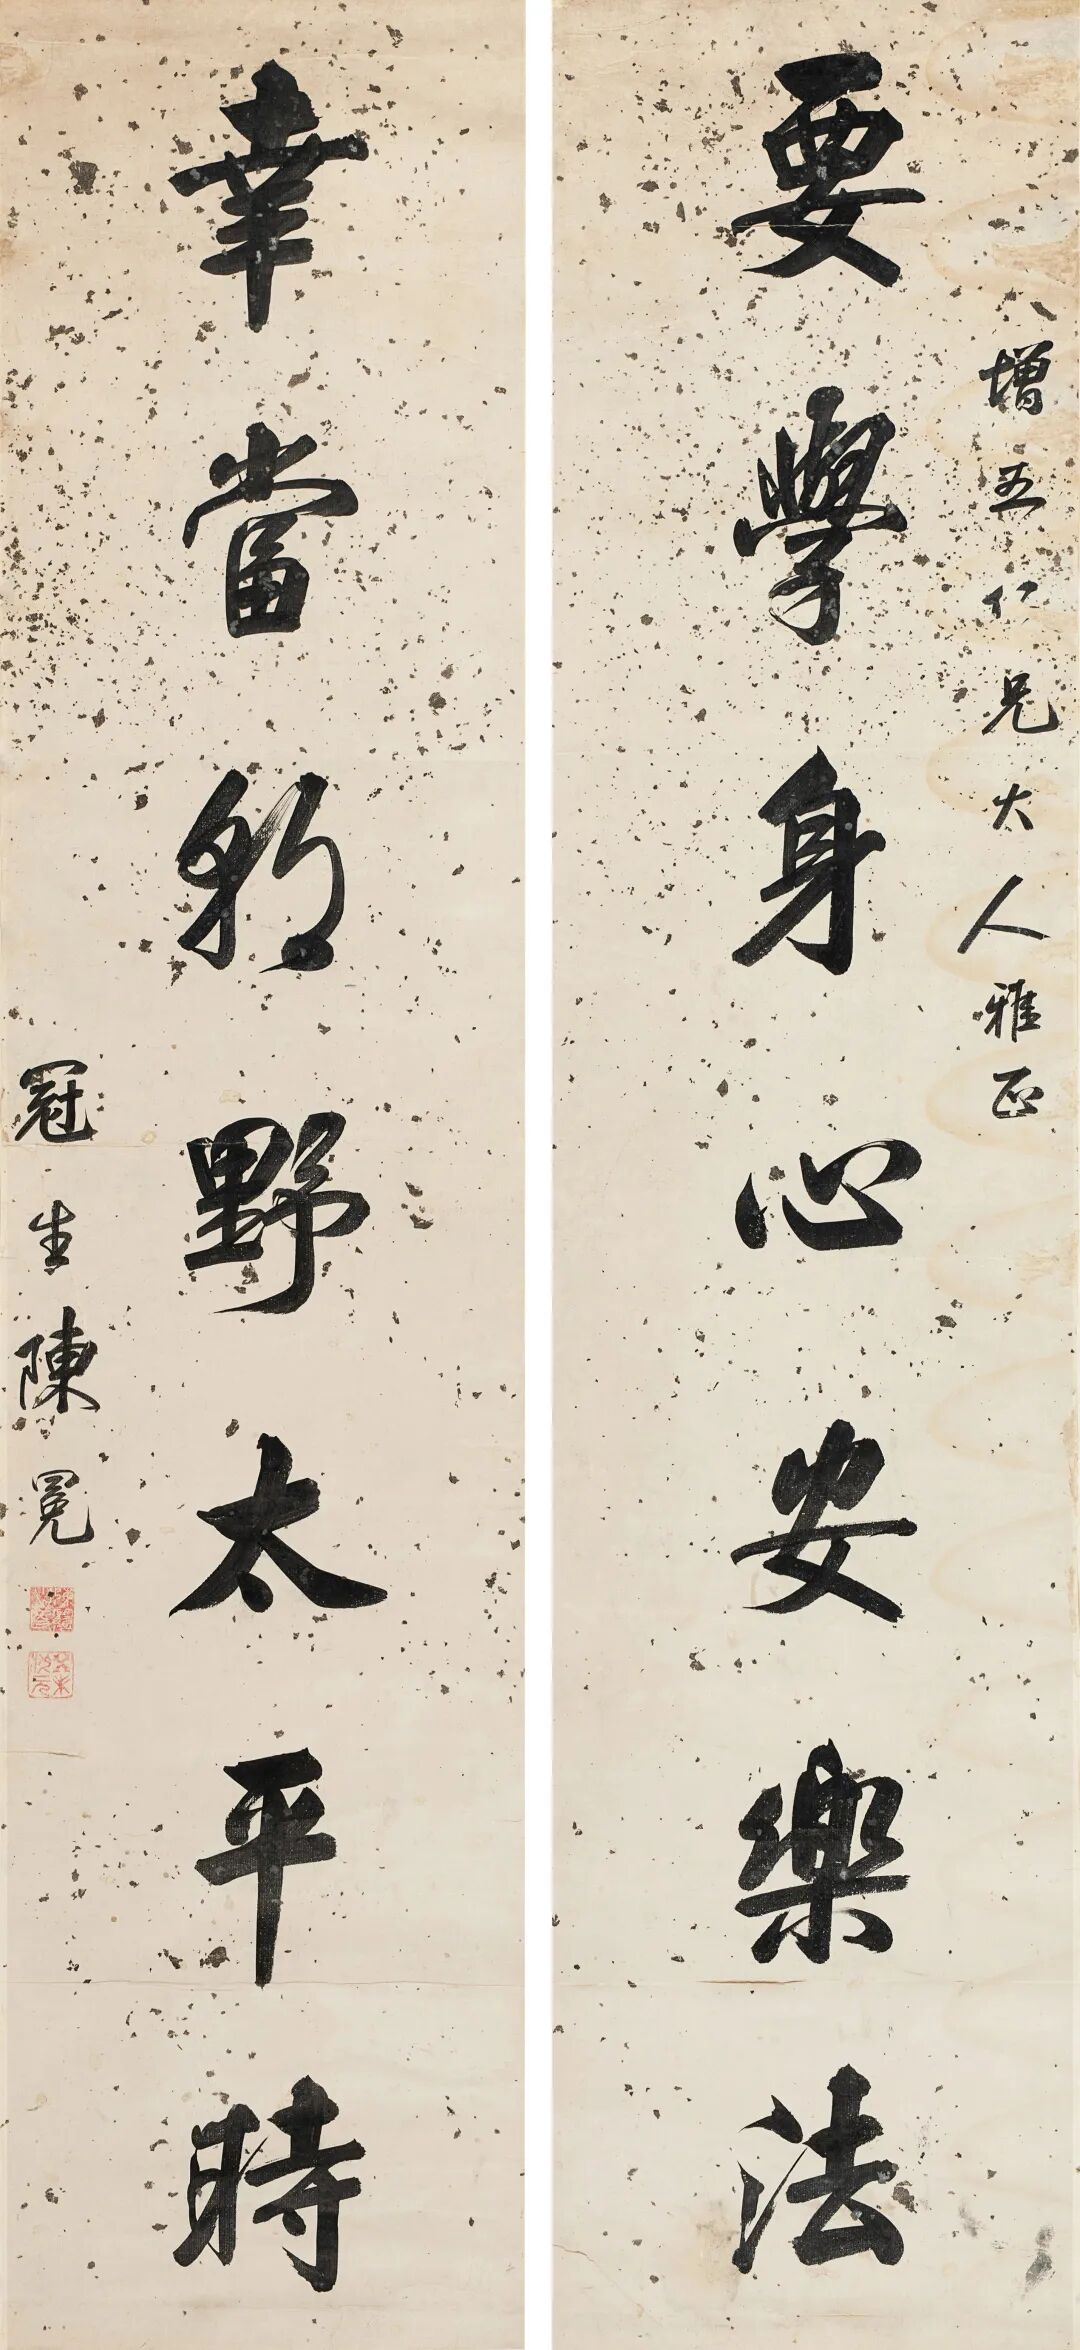 增五仁兄大人雅正
要學身心安樂法
幸當朝野太平時
冠生陳冕
癸未狀元